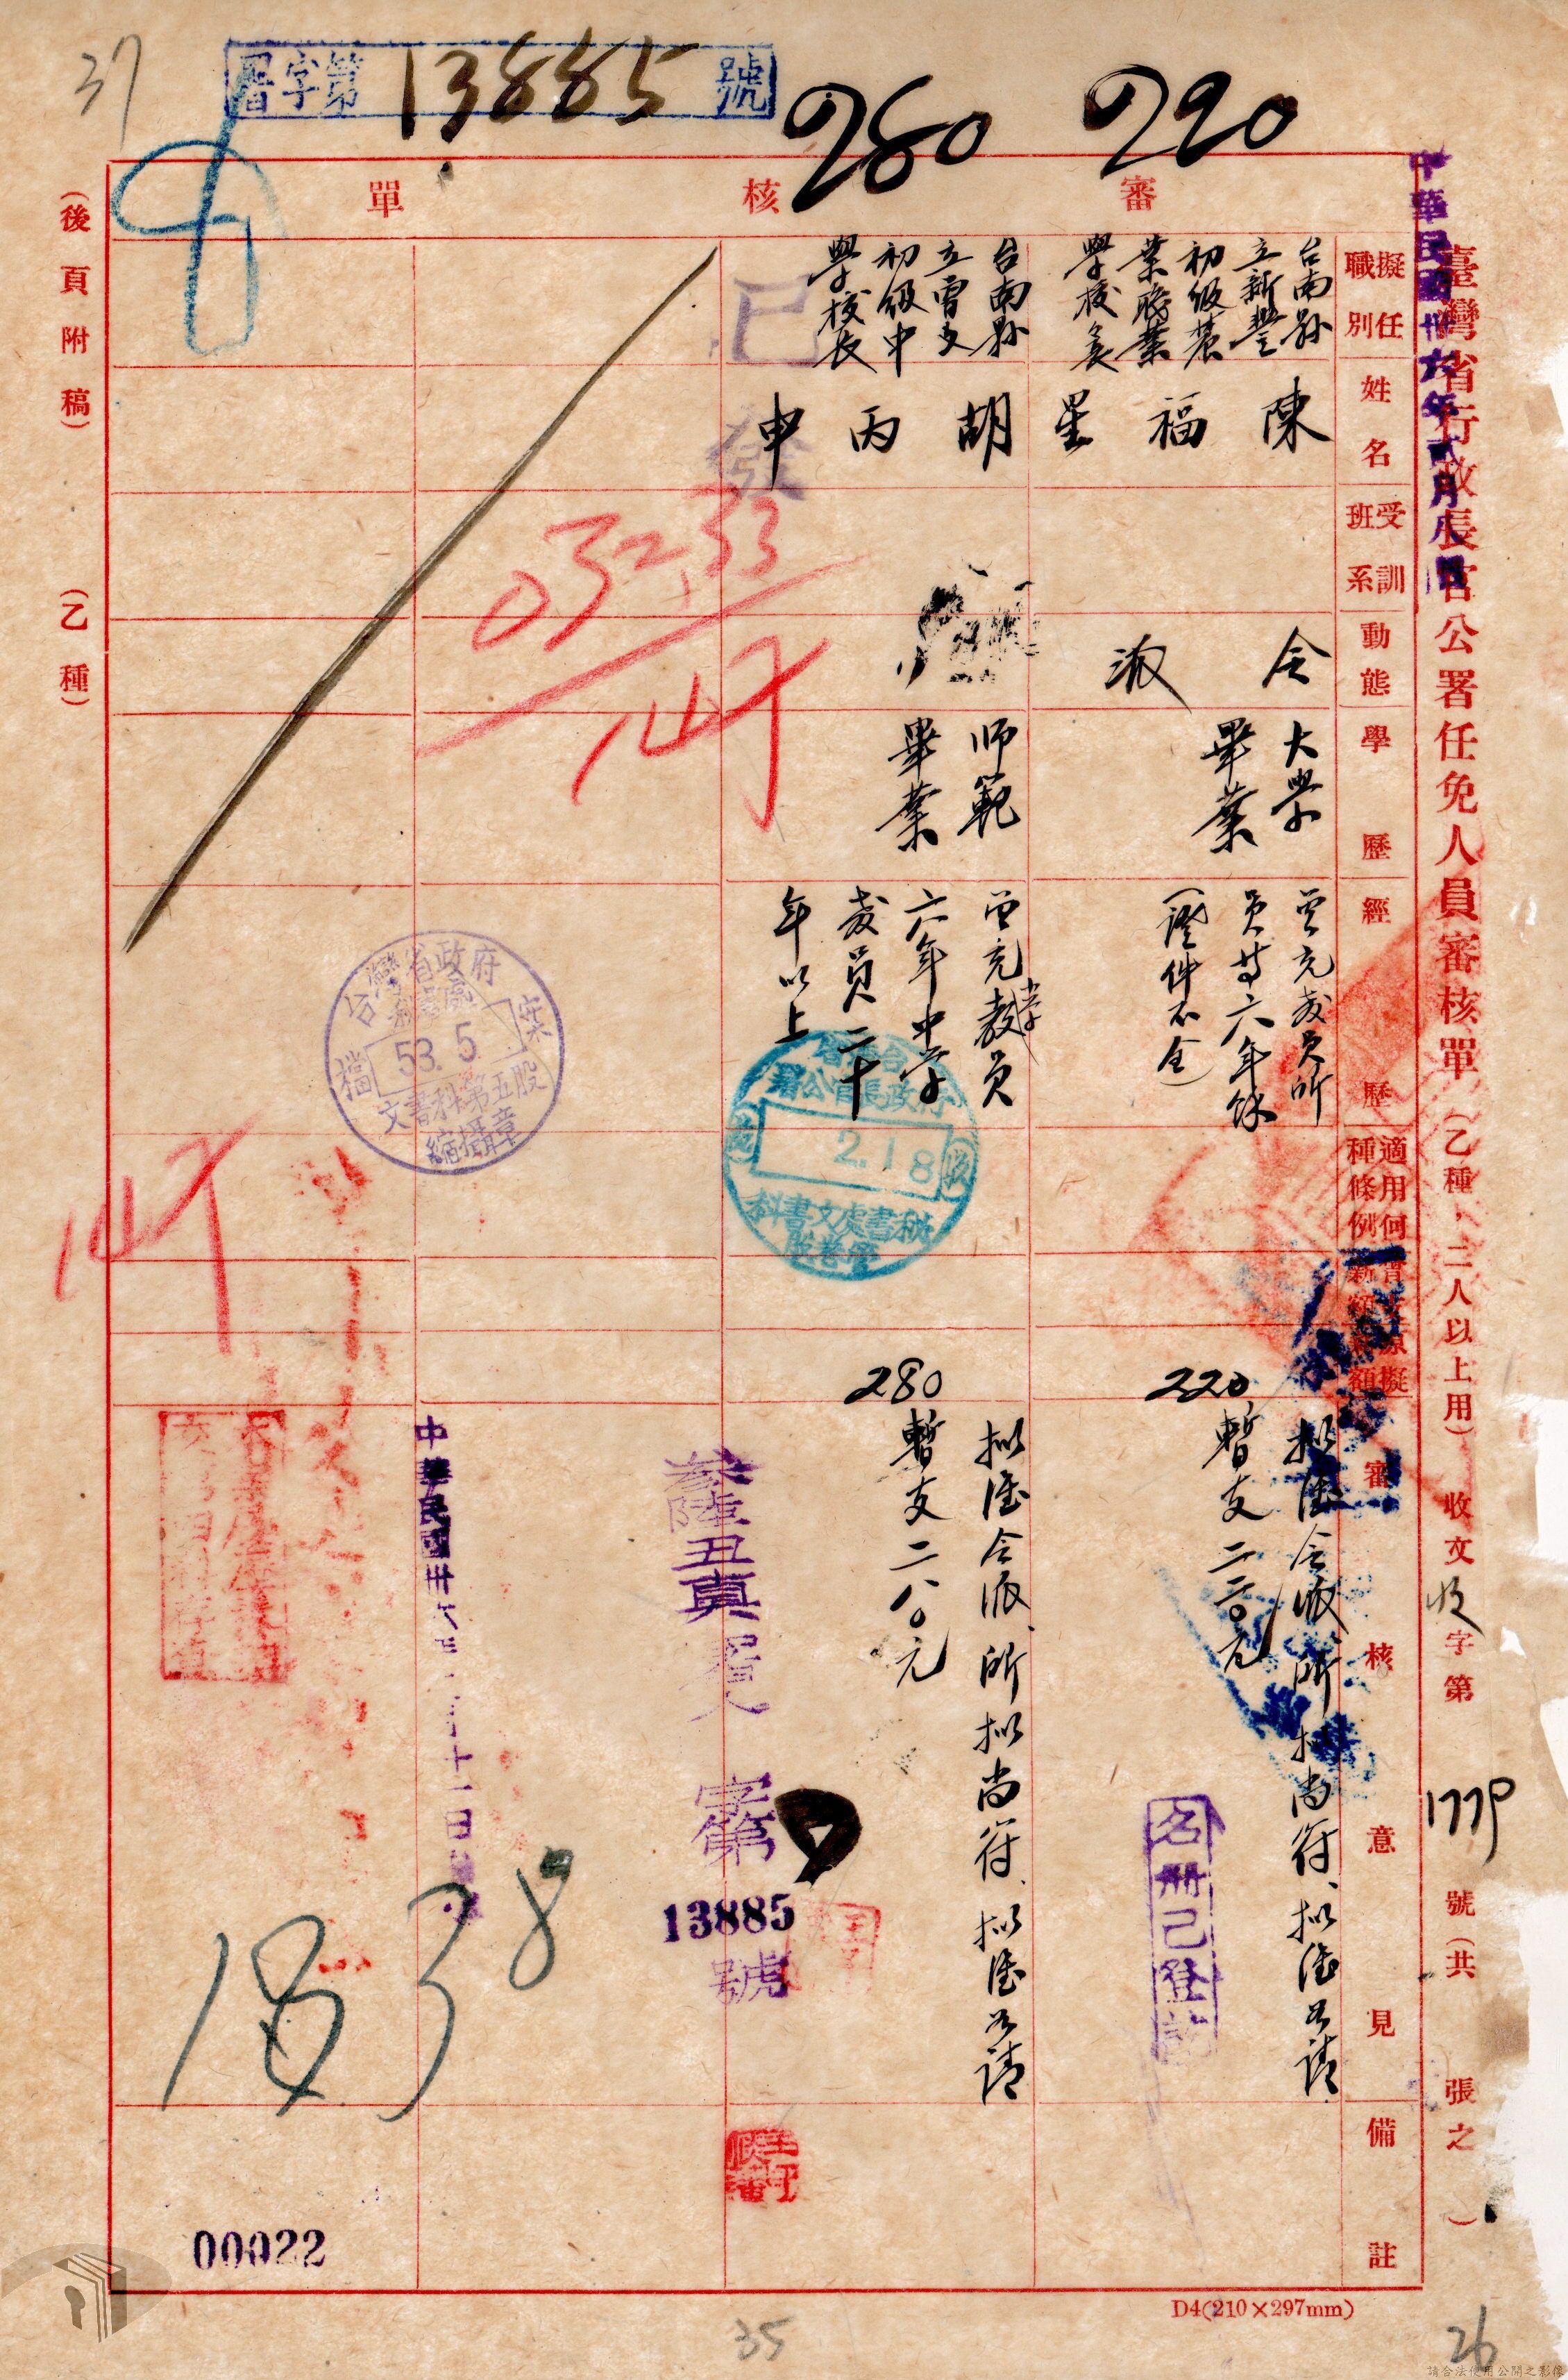 37
署字第13885號
280
220
審核單
中華民國卅六年貳月八日
臺灣省行政長官公署任免人員審核單(乙種,二人以上用) 收文收字第1779號(共 張之 )
擬任職別
姓名
受訓班系
動態
學歷
經歷
適用何種條例
審核意見
備註
台南縣
立新豐
初級農
業職業
學校長
陳福星
令派
大學
畢業
曾充教員所
員等六年餘
(證件不全)
220
擬准令派、所擬尚符、擬准照請
暫支二二〇元
名冊已登記
台南縣
立曾文
初級中
學校長
胡丙申
師範
畢業
曾充小學教員
六年中學
教員二十
年以上
280
擬准令派、所擬尚符、擬准照請
暫支二八〇元
已發
032.33
台灣省政府
秘書處
檔案
53.5
文書科第五股
縮攝章
2.18
秘書處文書科
參陸丑真署人字第
13885
號
中華民國卅六年 月十一日
1838
(後頁附稿)
(乙種)
00022
D4(210×297mm)
35
26
請合法使用公開之影像